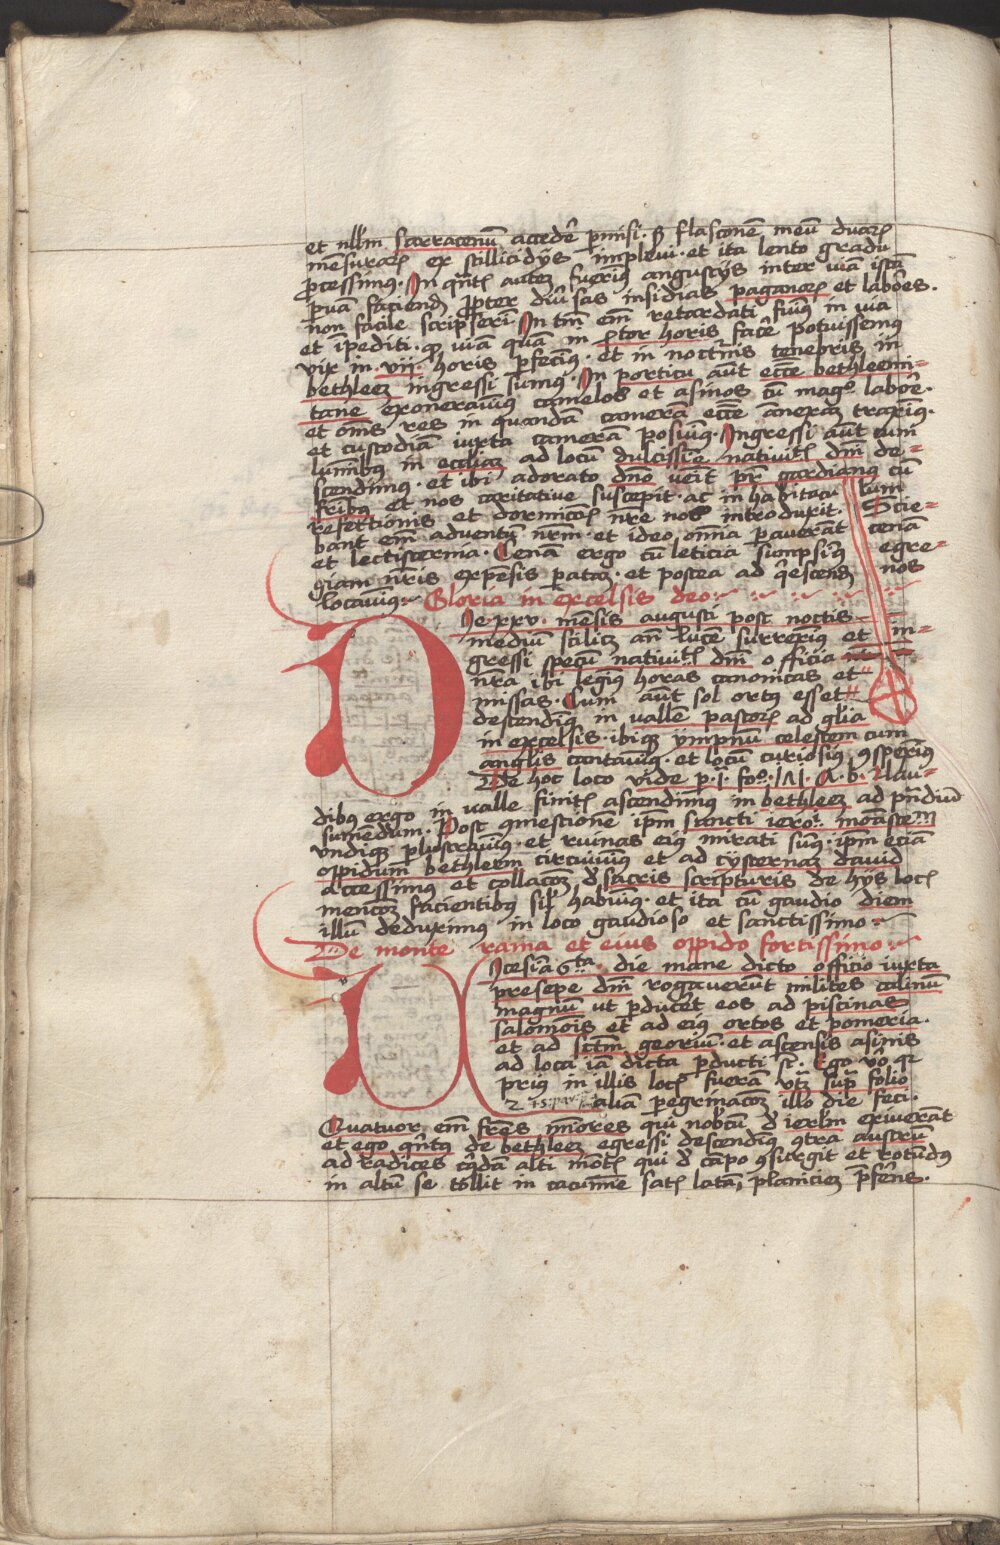 et nllm̄ sarracenū accedeˀ p̲misi · s̄ flasconē meū duaꝝ
mēsuraꝝ ex stillicidijs implevi · et ita lento gradu
ꝓcessimus · In qn̄tis autez fuerim9 angustijs inter uiā istā
ꝑuā faciend̄ ꝓpter diu̾sas insidias paganoꝝ et labōes ·
non facile scripserī · In tm̄ em̄ retardati fuim9 in via
et īpediti · ꝙ uiā quā in q̄tor horis facē potuissem9
vix in · vii · horis ꝑfecim9 · et in noct̾nis tenepris in
bethleez ingressi sumus · In porticu aūt eccē bethleemi=
tane exonerauim9 camelos et asinos cū mag° labōe ·
et om̄s res in quandā camerā eccē anexaz traxim9 ·
et custodiā iuxta camerā posuim9 · Ingressi aūt cum
lumībus in eccliaz ad locū dulcissīe natiuitꝭ dn̄i de=
scendimus · et ibi adorato dn̄o ueīt pr̄ gardianus cū
fr̄ibus et nos caritative suscepit · ac in habitacu lum
refectionis et dormicōis nr̄e nos introduxit · Scie=
bant em̄ adventū nr̄m · et ideo omnia ꝑauerāt cenā
et lectisternia · Cenā ergo cū leticia sumpsim9 egre=
giam nr̄is expēsis ꝑataz · et postea ad q̄escend̄ nos
locauim9 · Gloria in excelsis deo
Die xxv · mēsis augusti post noctis
mediū scilicz an̄ lucē surrexim9 et in=
gressi specū natiuitꝭ dn̄i officia
nr̄a ibi legim9 horas canonicas et
missas · Cum aūt sol ortus esset
descendim9 in vallē pastoꝝ ad gl̄ia
in excelsis · ibiqꝫ ympnū celestem cum
anglis cantauim9 · et locū curiosius ꝯspexim9
De hoc loco vide p · j · fo° · 171 · A · b · lau=
dibus ergo in valle finitꝭ ascendimus in bethleez ad pn̄diū
sumēdum · Post ꝯmestionē ip̄m sancti ieroi monaste
vndiqꝫ ꝑlustrauim9 · et ruinas eius mirati sum9 · ip̄m eciā
oppidum bethleem circuiuim9 et ad cysternaz dauid
accessimus et collacōez d̄ sacris scripturis de hijs locꝭ
mencōez facientibus sil̄ habuim9 · et ita cū gaudio diem
illū deduximus in loco gaudioso et sanctissimo
De monte rama et eius oppido fortissimo
Vicesiā 6ta · die mane dicto officio iuxta
presepe dn̄i rogauerunt milites calinū
magnū ut ꝑduc̾et eos ad piscinas
salomōis et ad eius ortos et pomeria ·
et ad sctm̄ georiū · et ascensis asinis
ad loca iā dicta ꝑducti sꝭ · Ego vo̾ qꝛ
prius in illis locꝭ fuerā vtꝫ sup̄ folio
aliā ꝑegrinacōez illo die feci ·
Quatuor em̄ fr̄es minores qui nob̄cū d̄ ierl̄m exiuerāt
et ego qn̄tus de bethleez egressi descendim9 ꝯtra austrū
ad radices cuiˀdā alti mōtꝭ qui d̄ cāpo ꝯsurgit et rotūdus
in altū se tollit in cacumīe satꝭ latā planiciez p̄ferēs ·